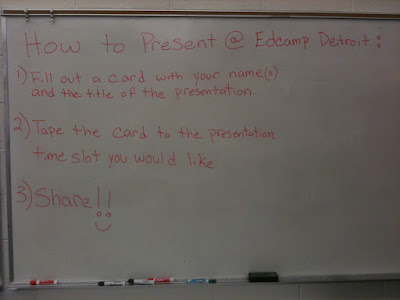 How to Present @ Edcamp Detroit:
1) Fill out a card with your name(s)
and the title of the presentation
2) Tape the card to the presentation
time slot you would like
3) Share!!